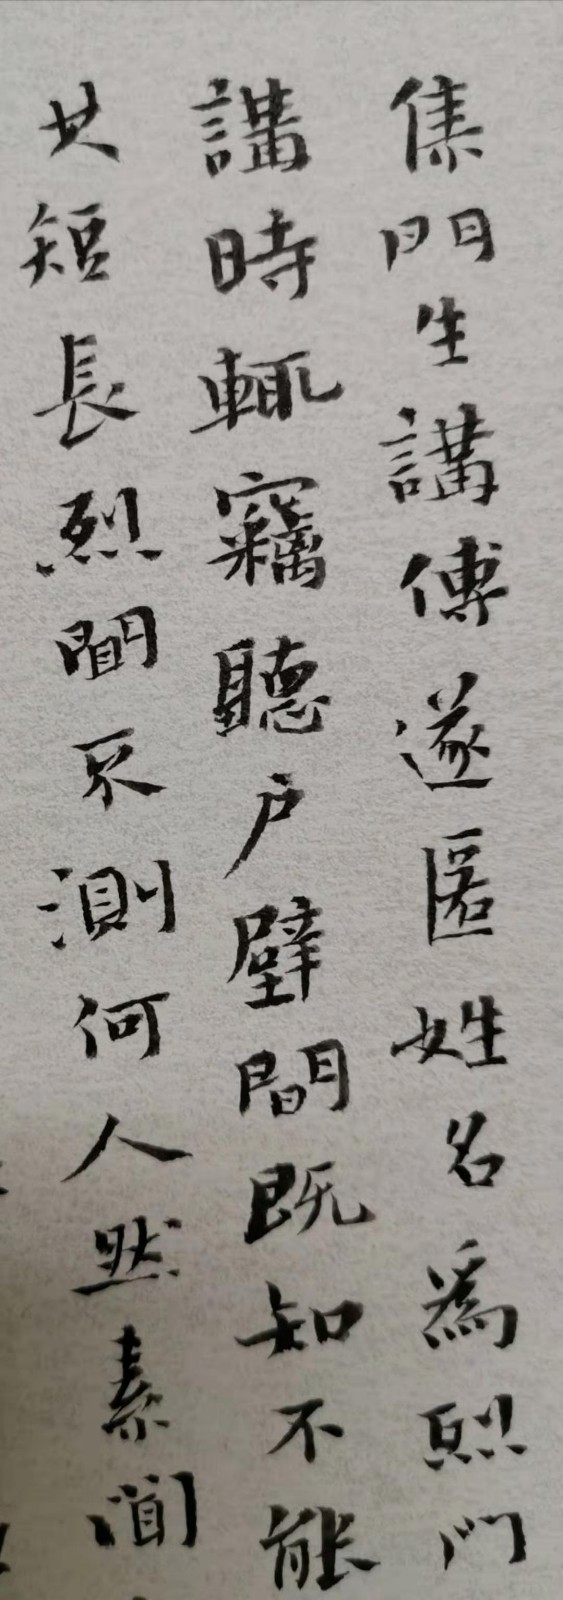 集門生講傳遂匿姓名爲烈門
講時輒竊聽户壁間既知不能
其短長烈聞不測何人然素聞